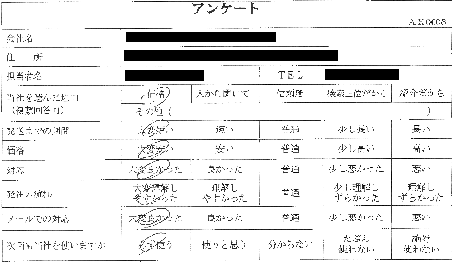 アンケート
会社名
住 所
担当者名 TEL
当社を選んだ理由 価格 人から聞いて 信頼度
(複数回答可) その他( )
発送までの期間 大変短い 短い 普通 少し長い 長い
価格 大変安い 安い 普通 少し高い 高い
対応 大変良かった 良かった 普通 少し悪かった 悪い
大変理解し 理解し 普通 少し理解し 理解し
やすかった やすかった づらかった づらかった
メールでの対応 大変良かった 良かった 普通 少し悪かった 悪い
次回も当社を使いますか 必ず使う 使うと思う 分からない たぶん 絶対
使わない 使わない